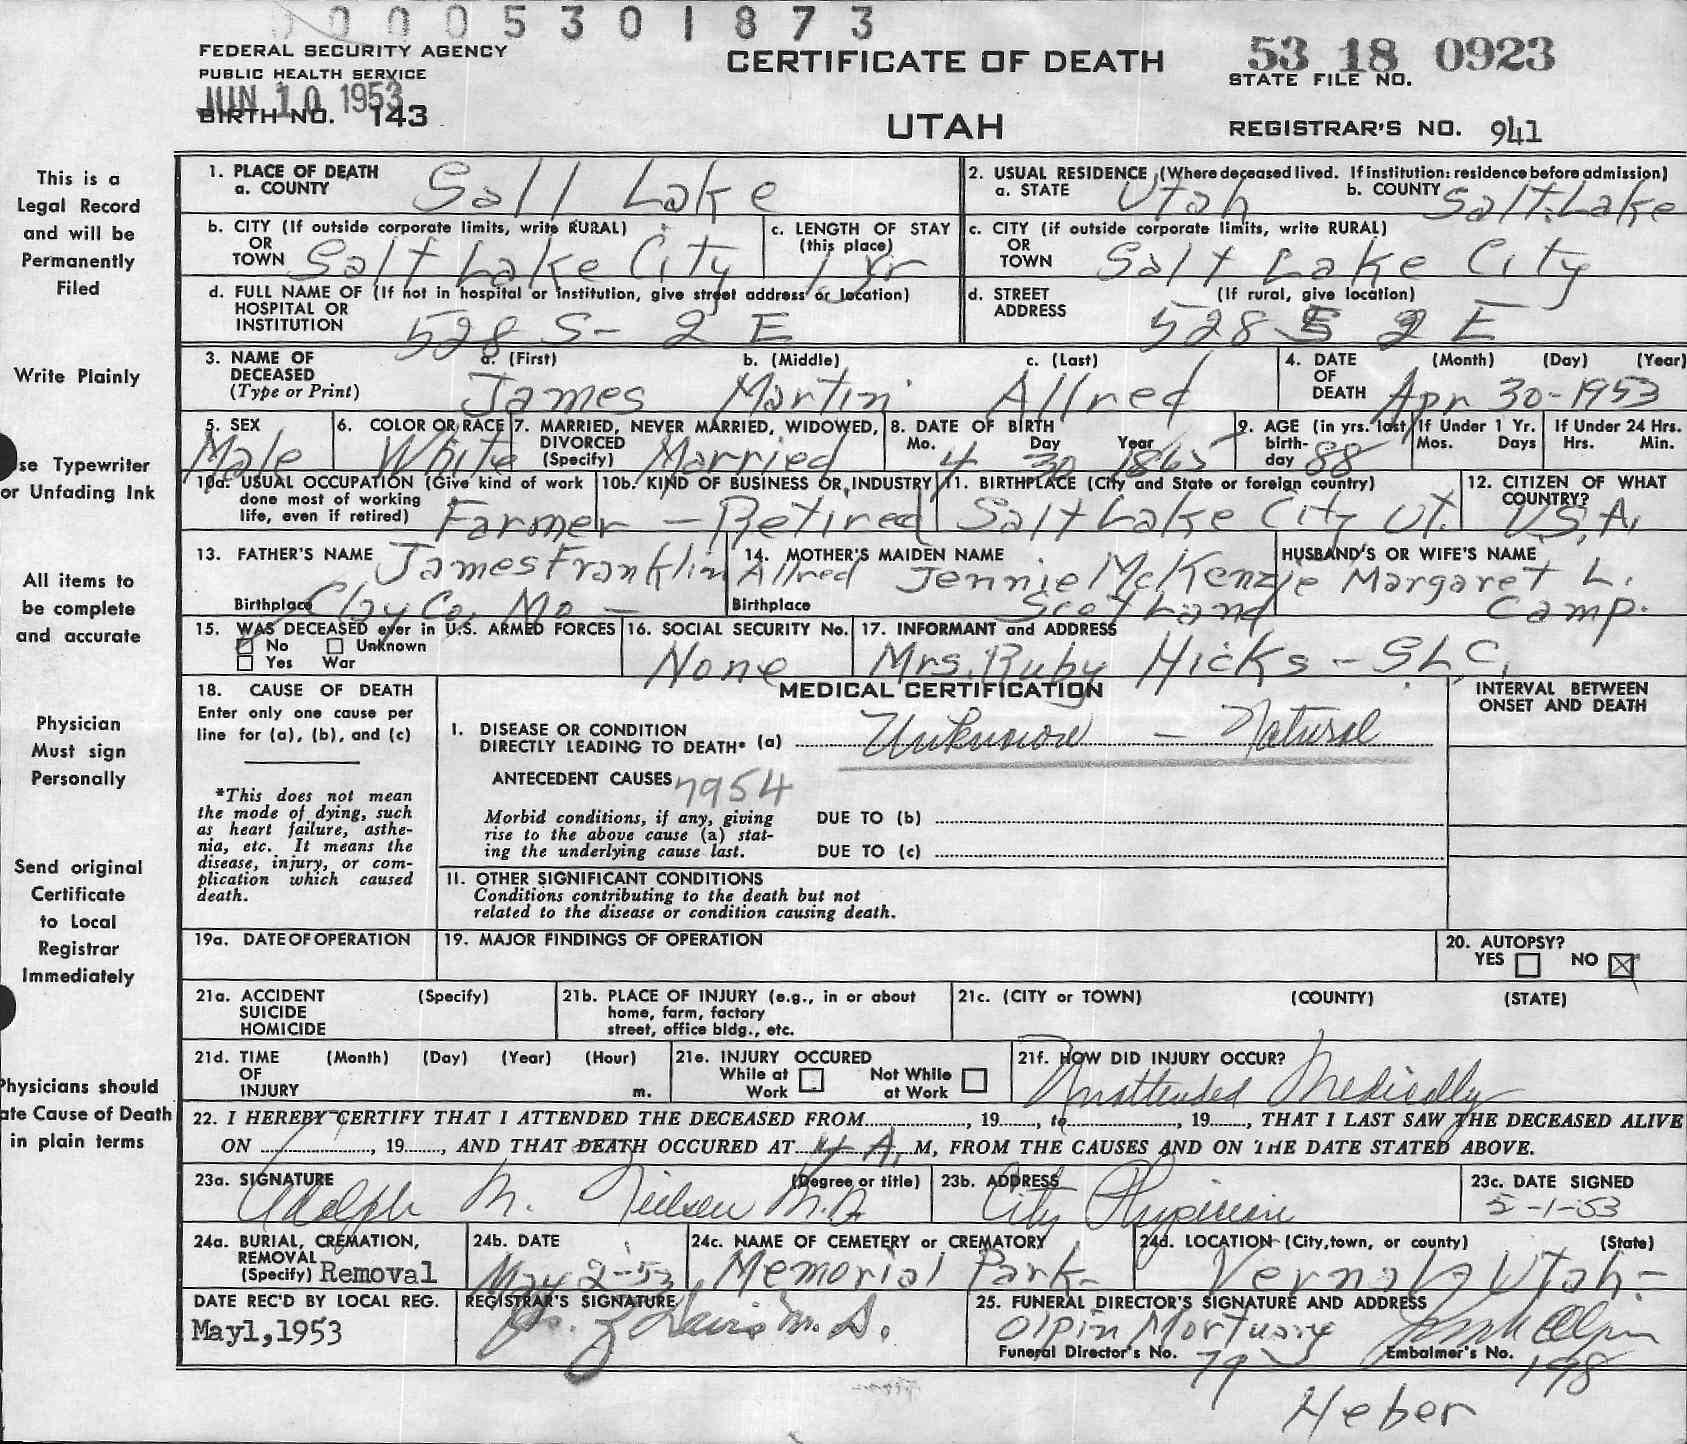 0005301873
FEDERAL SECURITY AGENCY
PUBLIC HEALTH SERVICE
JUN 10 1953
BIRTH NO. 143
CERTIFICATE OF DEATH
UTAH
53 18 0923
STATE FILE NO.
REGISTRAR'S NO. 941
This is a
Legal Record
and will be
Permanently
Filed
Write Plainly
se Typewriter
or Unfading Ink
All items to
be complete
and accurate
Physician
Must sign
Personally
Send original
Certificate
to Local
Registrar
Immediately
Physicians should
ate Cause of Death
in plain terms
1. PLACE OF DEATH
a. COUNTY Salt Lake
2. USUAL RESIDENCE (Where deceased lived. If institution: residence before admission)
a. STATE Utah b. COUNTY Salt Lake
b. CITY (If outside corporate limits, write RURAL)
OR
TOWN Salt Lake City
c. LENGTH OF STAY
(this place) 1 yr
c. CITY (if outside corporate limits, write RURAL)
OR
TOWN Salt Lake City
d. FULL NAME OF (If not in hospital or institution, give street address or location)
HOSPITAL OR
INSTITUTION 528 S- 2 E
d. STREET (If rural, give location)
ADDRESS 528 S 2 E
3. NAME OF
DECEASED
(Type or Print)
a. (First) b. (Middle) c. (Last)
James Martin Allred
4. DATE (Month) (Day) (Year)
OF
DEATH Apr 30-1953
5. SEX
Male
6. COLOR OR RACE
White
7. MARRIED, NEVER MARRIED, WIDOWED,
DIVORCED
(Specify) Married
8. DATE OF BIRTH
Mo. Day Year
4 30 1865
9. AGE (in yrs. last
birth-
day 88
If Under 1 Yr.
Mos. Days
If Under 24 Hrs.
Hrs. Min.
10a. USUAL OCCUPATION (Give kind of work
done most of working
life, even if retired) Farmer - Retired
10b. KIND OF BUSINESS OR INDUSTRY
11. BIRTHPLACE (City and State or foreign country)
Salt Lake City Ut.
12. CITIZEN OF WHAT
COUNTRY?
U.S.A.
13. FATHER'S NAME James Franklin Allred
Birthplace Clay Co, Mo -
14. MOTHER'S MAIDEN NAME
Jennie McKenzie
Birthplace Scotland
HUSBAND'S OR WIFE'S NAME
Margaret L.
Camp.
15. WAS DECEASED ever in U.S. ARMED FORCES
No Unknown
Yes War
16. SOCIAL SECURITY No.
None
17. INFORMANT and ADDRESS
Mrs. Ruby Hicks - SLC,
18. CAUSE OF DEATH
Enter only one cause per
line for (a), (b), and (c)
*This does not mean
the mode of dying, such
as heart failure, asthe-
nia, etc. It means the
disease, injury, or com-
plication which caused
death.
MEDICAL CERTIFICATION
INTERVAL BETWEEN
ONSET AND DEATH
I. DISEASE OR CONDITION
DIRECTLY LEADING TO DEATH* (a) Unknown - Natural
ANTECEDENT CAUSES 7954
Morbid conditions, if any, giving
rise to the above cause (a) stat-
ing the underlying cause last.
DUE TO (b)
DUE TO (c)
11. OTHER SIGNIFICANT CONDITIONS
Conditions contributing to the death but not
related to the disease or condition causing death.
19a. DATE OF OPERATION
19. MAJOR FINDINGS OF OPERATION
20. AUTOPSY?
YES NO
21a. ACCIDENT (Specify)
SUICIDE
HOMICIDE
21b. PLACE OF INJURY (e.g., in or about
home, farm, factory
street, office bldg., etc.
21c. (CITY or TOWN) (COUNTY) (STATE)
21d. TIME (Month) (Day) (Year) (Hour)
OF
INJURY m.
21e. INJURY OCCURED
While at Work Not While at Work
21f. HOW DID INJURY OCCUR?
Unattended Medically
22. I HEREBY CERTIFY THAT I ATTENDED THE DECEASED FROM, 19, to, 19, THAT I LAST SAW THE DECEASED ALIVE
ON, 19, AND THAT DEATH OCCURED AT 4 A. M, FROM THE CAUSES AND ON THE DATE STATED ABOVE.
23a. SIGNATURE (Degree or title)
Adolph M. Nielsen M.D.
23b. ADDRESS
City Physician
23c. DATE SIGNED
5-1-53
24a. BURIAL, CREMATION,
REMOVAL
(Specify) Removal
24b. DATE
May 2-53
24c. NAME OF CEMETERY or CREMATORY
Memorial Park-
24d. LOCATION (City, town, or county) (State)
Vernal, Utah-
DATE REC'D BY LOCAL REG.
May1,1953
REGISTRAR'S SIGNATURE
Davis M.D.
25. FUNERAL DIRECTOR'S SIGNATURE AND ADDRESS
Olpin Mortuary
Funeral Director's No. 79
Embalmer's No. 198
Heber